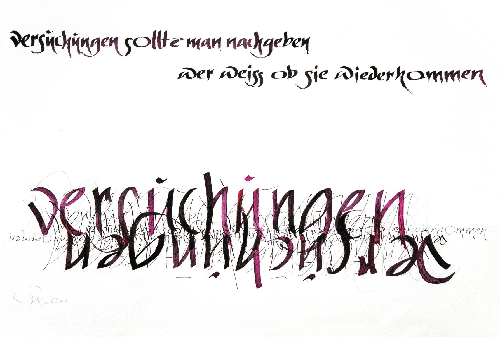 versuchungen sollte man nachgeben
wer weiss ob sie wiederkommen
versuchungen
versuchungen